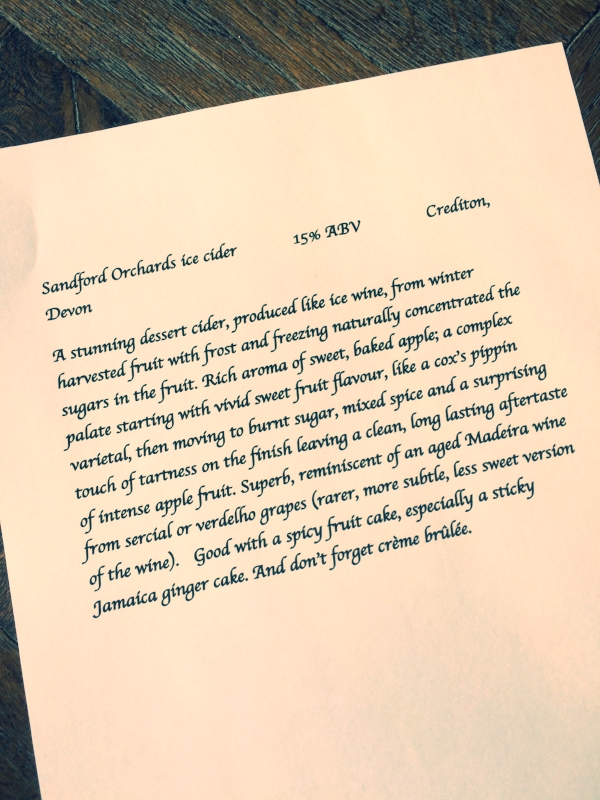 Sandford Orchards ice cider 15% ABV Crediton,
Devon
A stunning dessert cider, produced like ice wine, from winter
harvested fruit with frost and freezing naturally concentrated the
sugars in the fruit. Rich aroma of sweet, baked apple; a complex
palate starting with vivid sweet fruit flavour, like a cox's pippin
varietal, then moving to burnt sugar, mixed spice and a surprising
touch of tartness on the finish leaving a clean, long lasting aftertaste
of intense apple fruit. Superb, reminiscent of an aged Madeira wine
from sercial or verdelho grapes (rarer, more subtle, less sweet version
of the wine). Good with a spicy fruit cake, especially a sticky
Jamaica ginger cake. And don't forget crème brûlée.